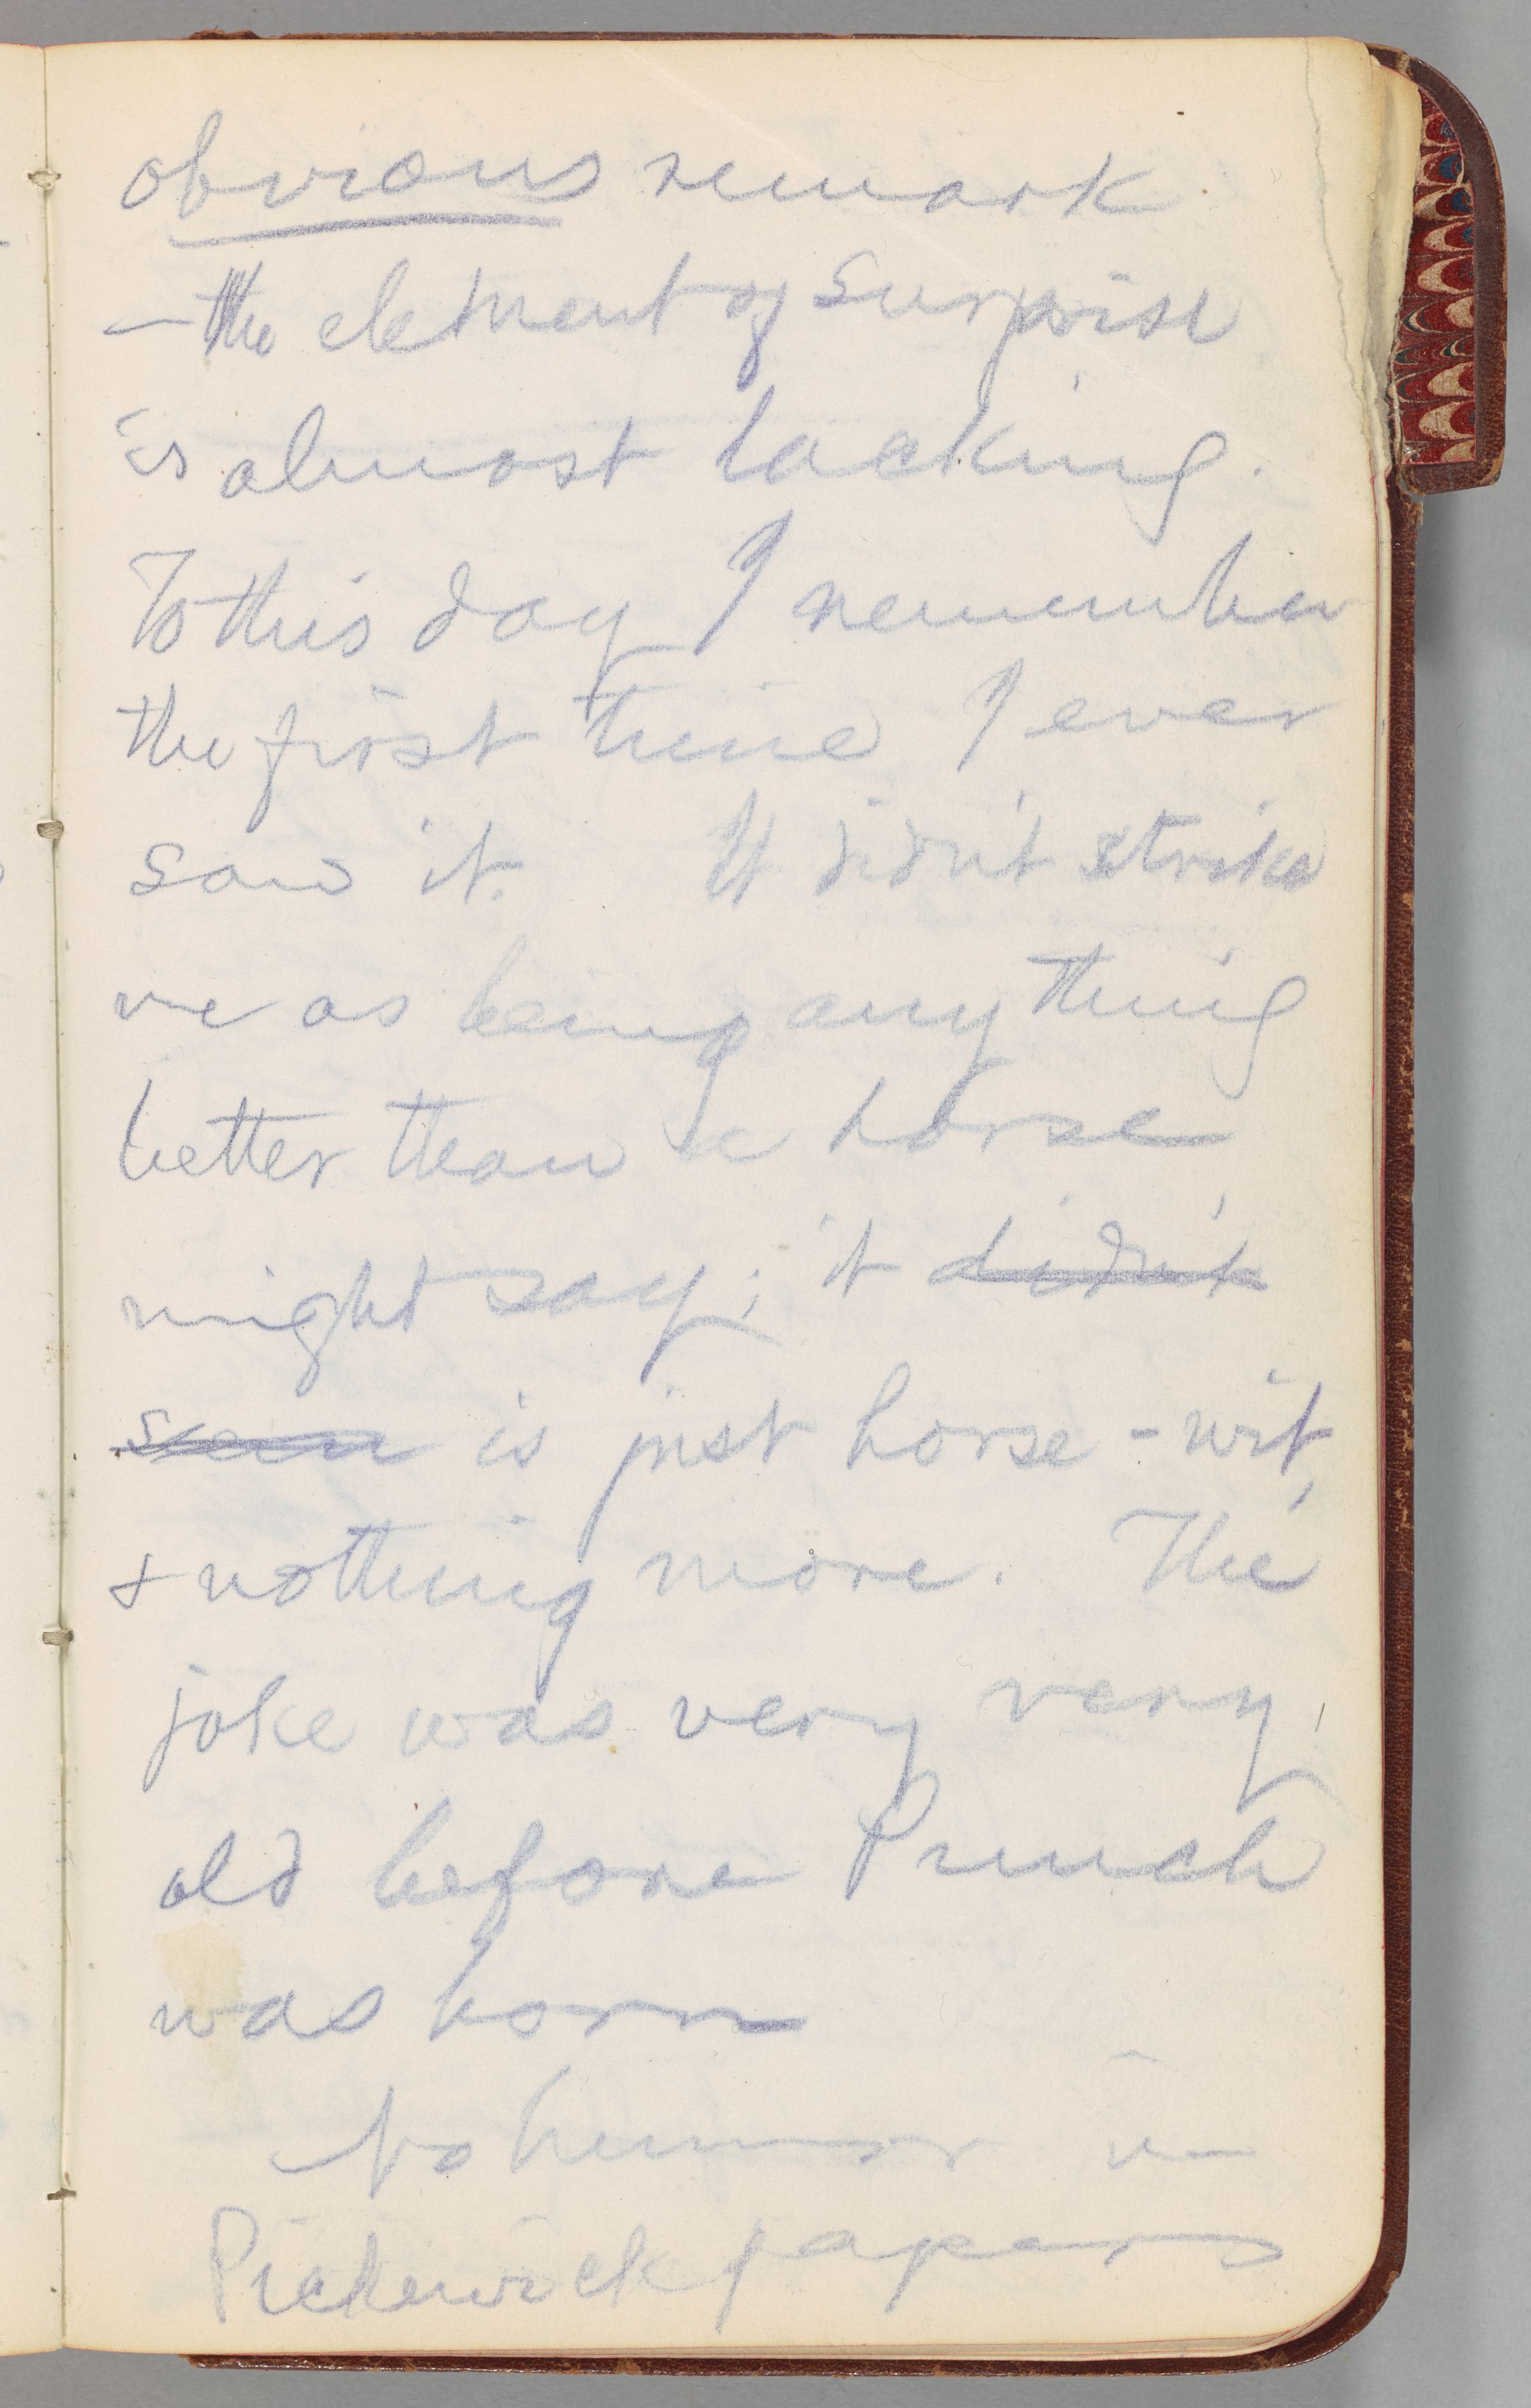 obvious remark
— the element of surprise
is almost lacking.
To this day I remember
the first time I ever
saw it. It didn't strike
me as being anything
better than a horse
might say; it didn't
seem is just horse-wit,
& nothing more. The
joke was very very
old before Punch
was born
No humor in
Pickwick papers